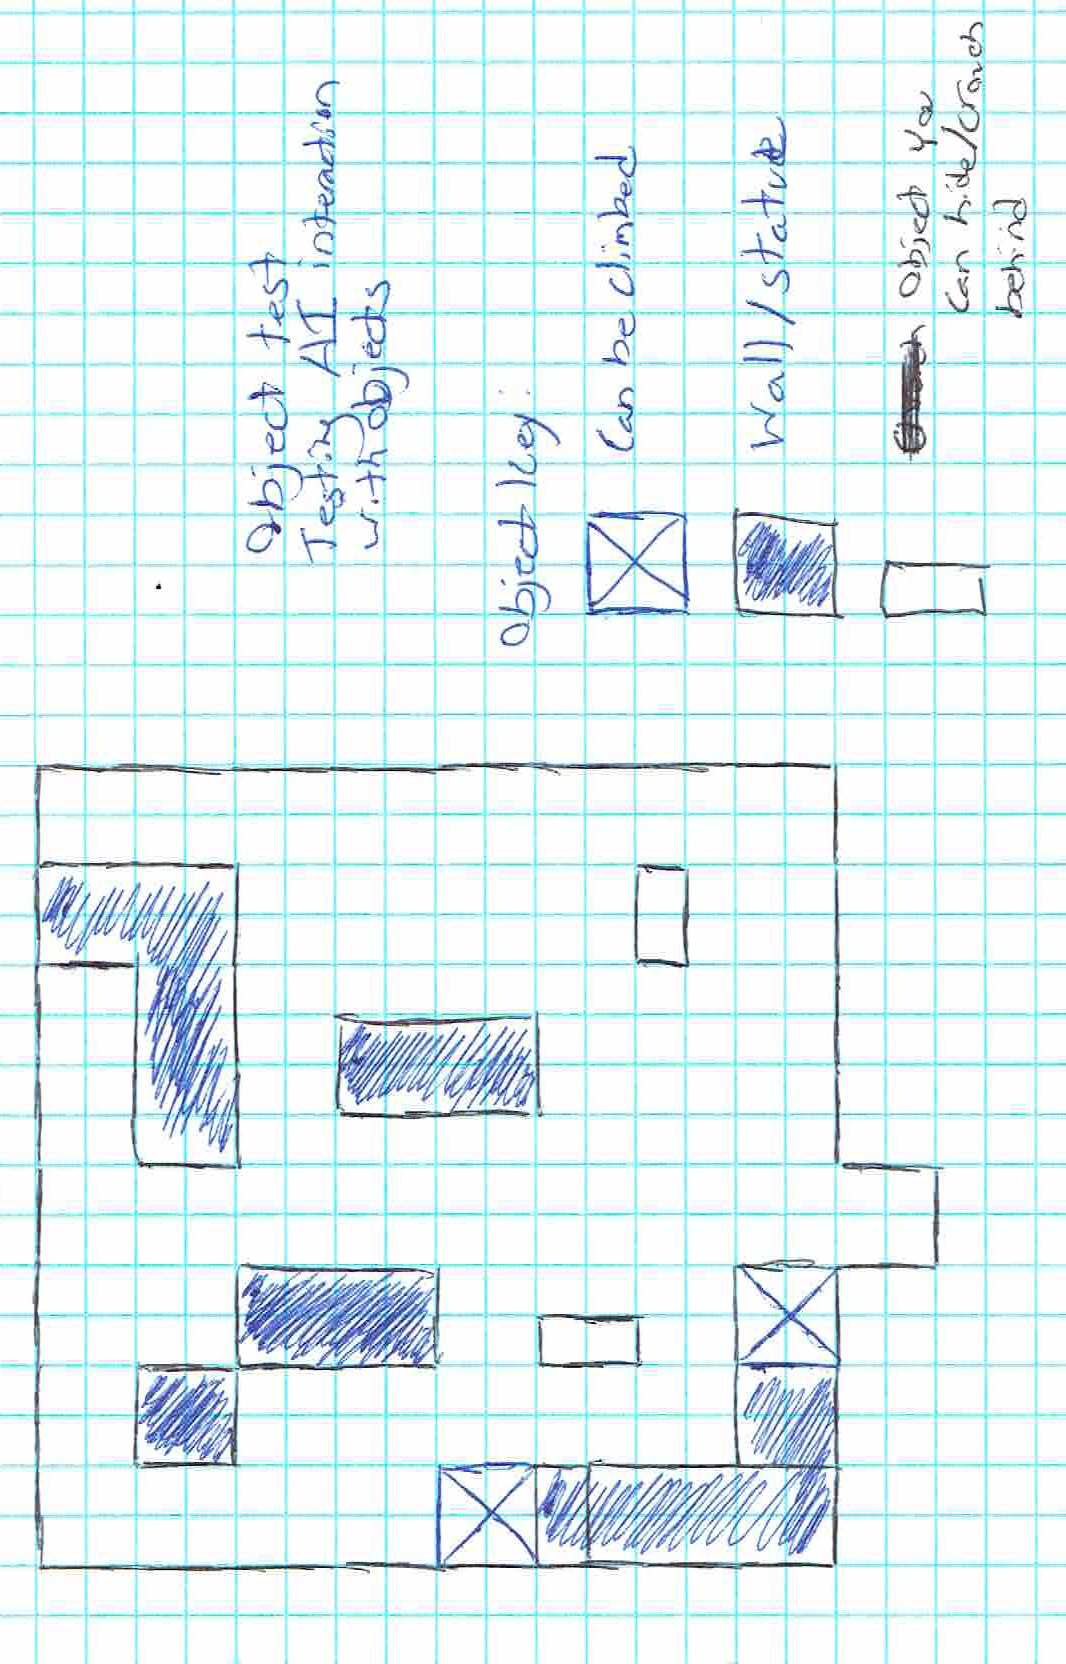 Object test
Testing AI interaction
with objects
Object Key:
Can be climbed
Wall/statue
Object you
can hide/crouch
behind